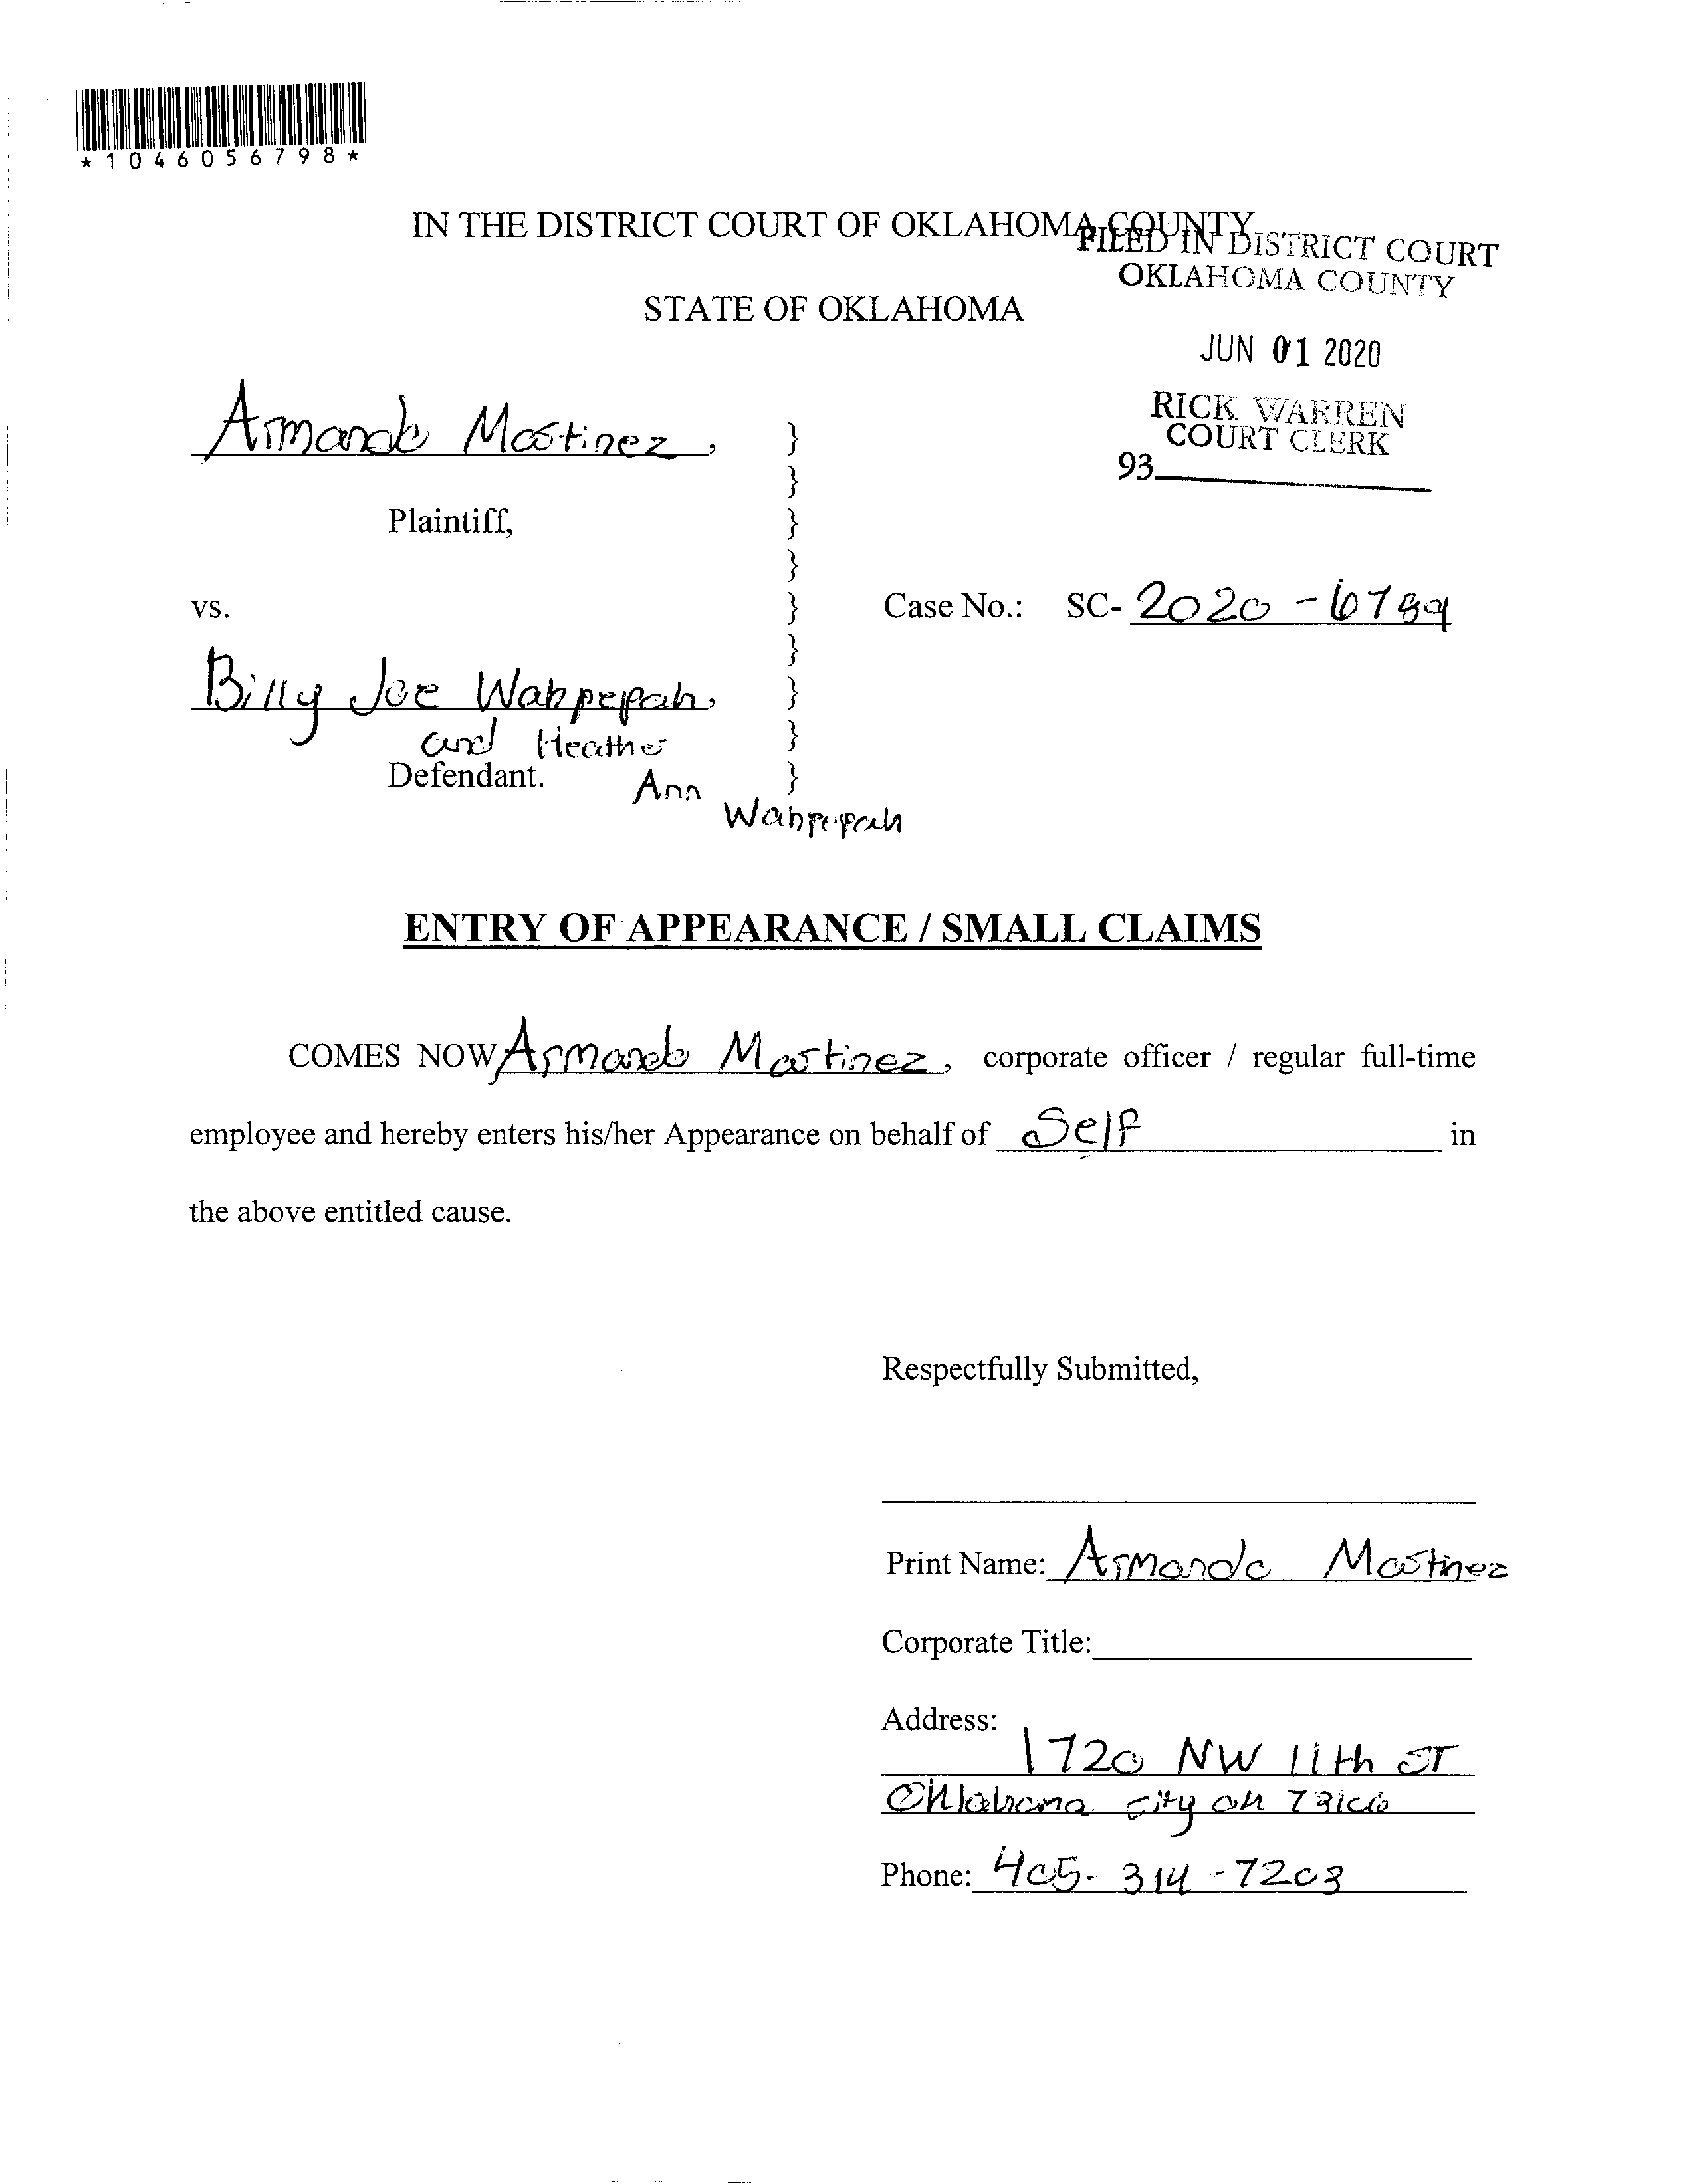 *1046056798*
IN THE DISTRICT COURT OF OKLAHOMA COUNTY
FILED IN DISTRICT COURT
OKLAHOMA COUNTY
STATE OF OKLAHOMA
JUN 01 2020
RICK WARREN
COURT CLERK
93
Armando Martinez,
}
}
Plaintiff,
}
}
vs.
}
Case No.: SC- 2020 - 6789
}
Billy Joe Wahpepah,
}
and Heather
}
Defendant.
}
Ann
Wahpepah
ENTRY OF APPEARANCE / SMALL CLAIMS
COMES NOW Armando Martinez, corporate officer / regular full-time
employee and hereby enters his/her Appearance on behalf of Self in
the above entitled cause.
Respectfully Submitted,
Print Name: Armando Martinez
Corporate Title:
Address:
1720 NW 11th ST
Oklahoma city ok 73106
Phone: 405-314-7203